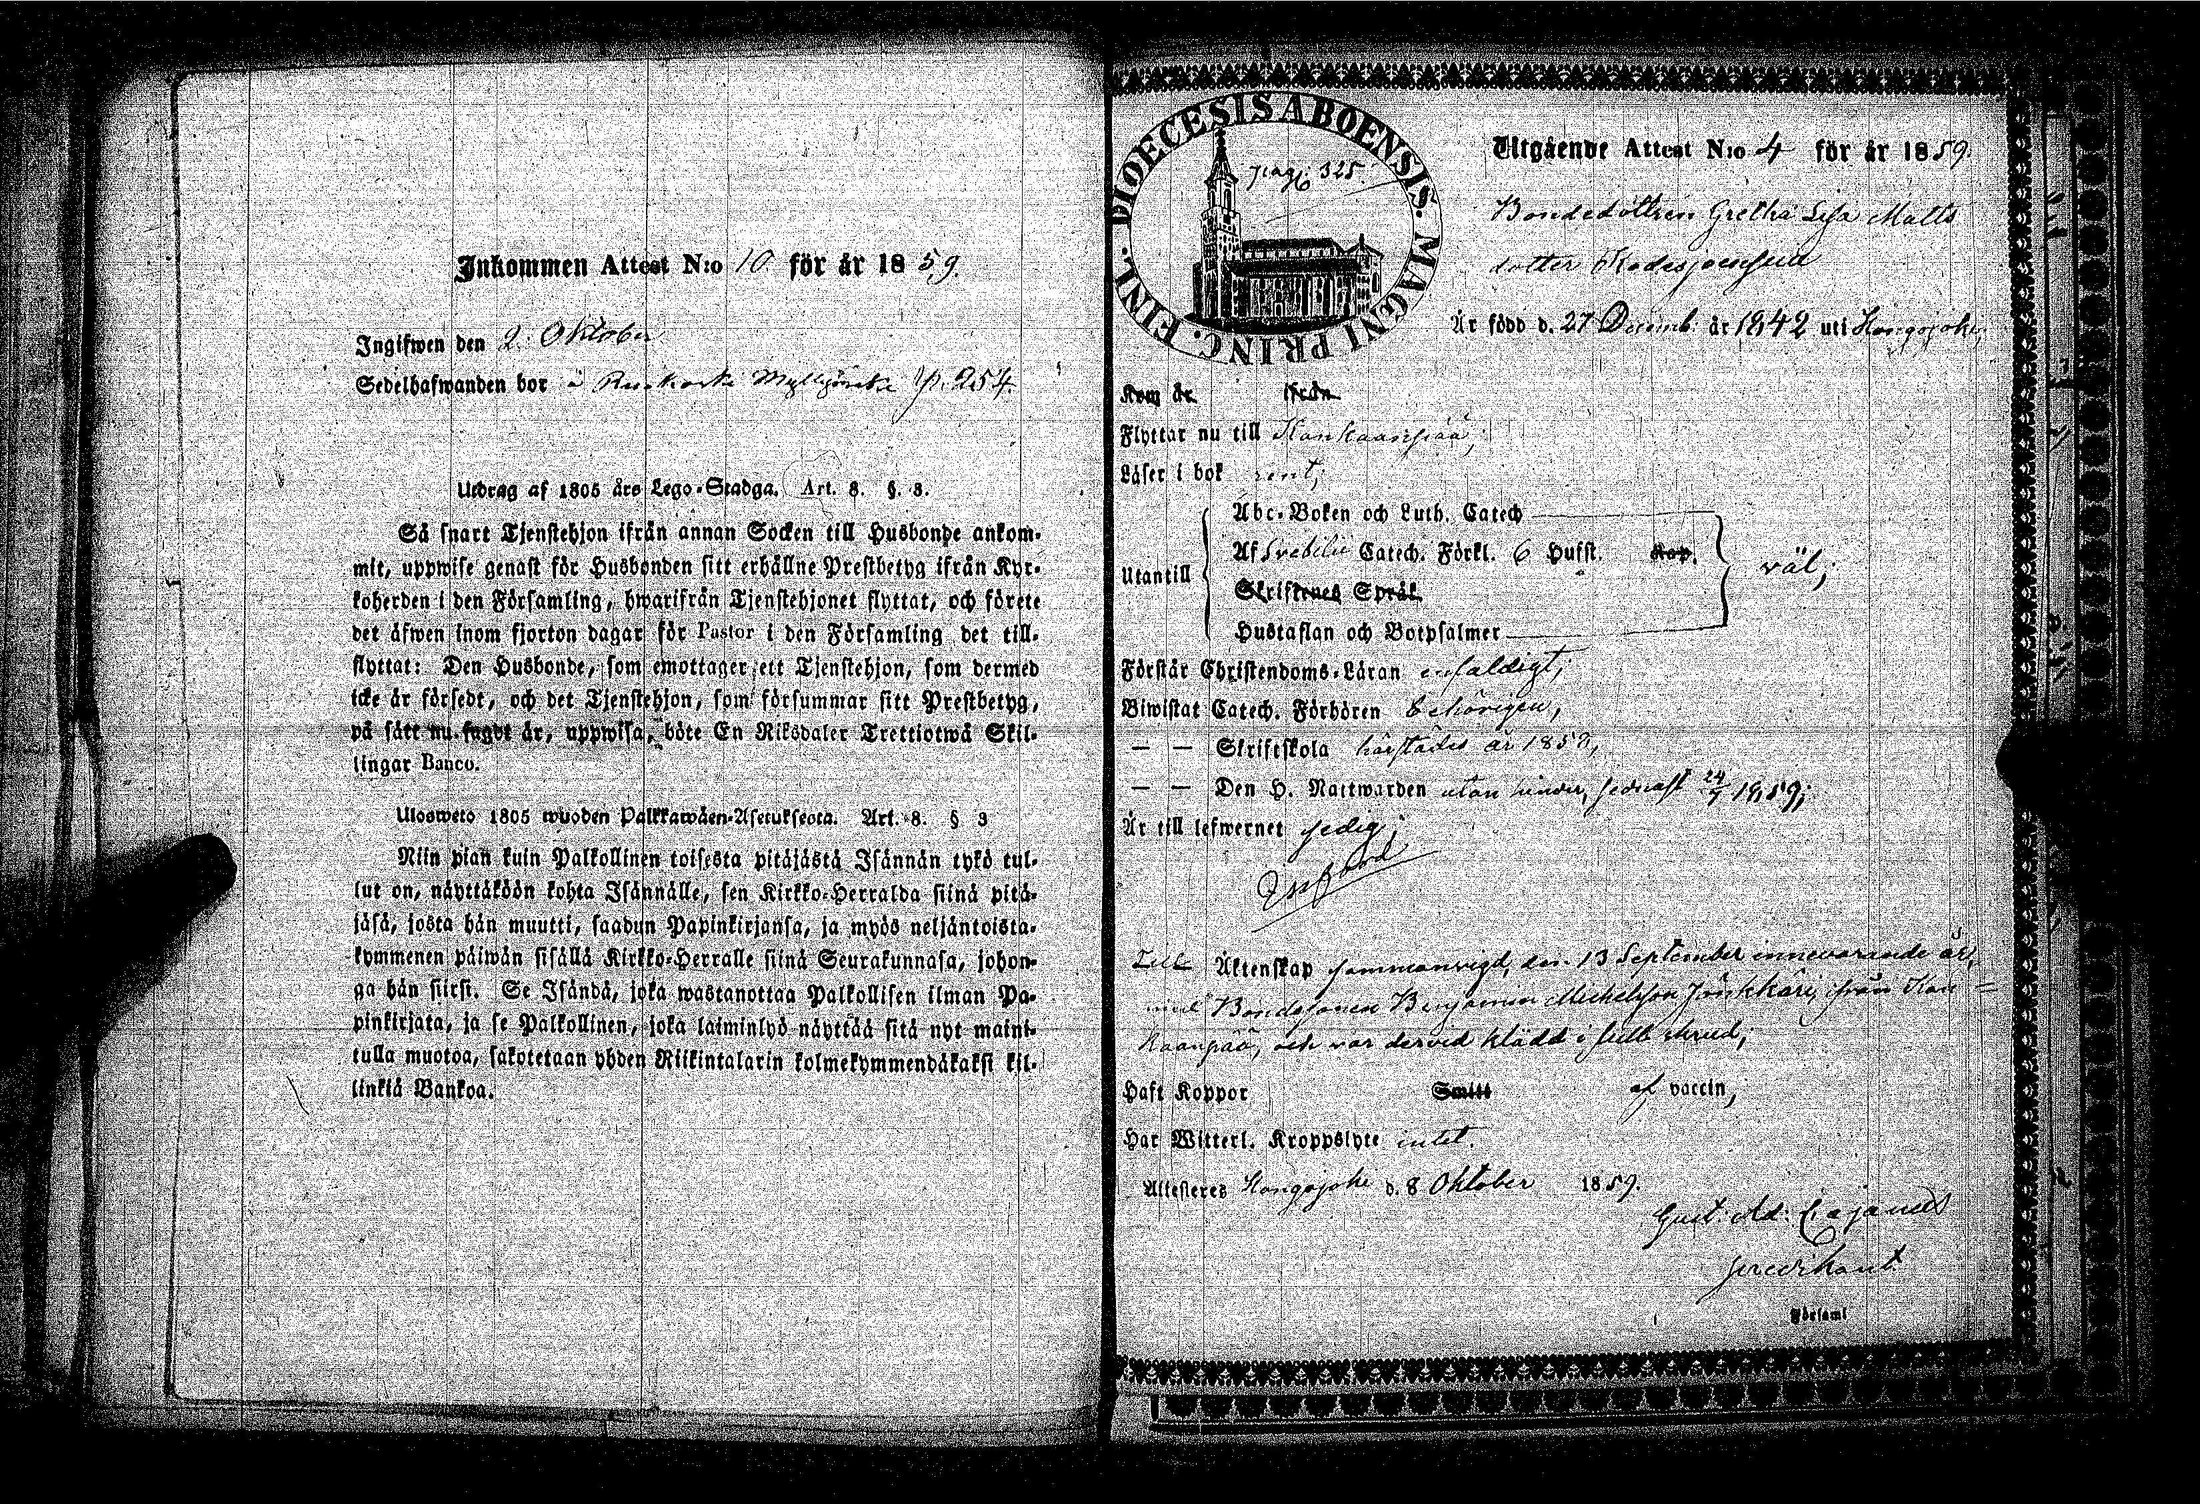 Inkommen Attest N:o 10 för år 1859.
Ingifwen den 2 Oktober
Sedelhafwanden bor å Ruskorki Myllymäki p. 254.
Utdrag af 1805 års Lego-Stadga. Art. 8. §. 3.
Så snart Tjenstehjon ifrån annan Socken till Husbonde ankom-
mit, uppwise genast för Husbonden sitt erhållne Prestbetyg ifrån Kyr-
koherden i den Församling, hwarifrån Tjenstehjonet flyttat, och förete
det äfwen inom fjorton dagar för Pastor i den Församling det till-
flyttat: Den Husbonde, som emottager ett Tjenstehjon, som dermed
icke är försedt, och det Tjenstehjon, som försummar sitt Prestbetyg,
på sätt nu sagdt är, uppwisa, böte En Riksdaler Trettiotwå Skil-
lingar Banco.
Ulosweto 1805 wuoden Palkkawäen-Asetuksesta. Art. 8. § 3
Niin pian kuin Palkollinen toisesta pitäjästä Isännän tykö tul-
lut on, näyttäköön kohta Isännälle, sen Kirkko-Herralda siinä pitä-
jäsä, josta hän muutti, saadun Papinkirjansa, ja myös neljäntoista-
kymmenen päiwän sisällä Kirkko-Herralle siinä Seurakunnasa, johon-
ga hän siirsi. Se Isändä, joka wastanottaa Palkollisen ilman Pa-
pinkirjata, ja se Palkollinen, joka laiminlyö näyttää sitä nyt maini-
tulla muotoa, sakotetaan yhden Riikintalarin kolmekymmendäkaksi kil-
linkiä Bankoa.
DIOECESIS ABOENSIS. MAGNI PRINC. FINL.
pag. 325
Utgående Attest N:o 4 för år 1859.
Bondedottren Gretha Lisa Matts
dotter
Är född d. 27 Decemb. år 1842 uti Hongojoki,
Kom år ifrån
Flyttar nu till Kankaanpää,
Läser i bok rent,
Utantill
Abc-Boken och Luth. Catech
Af Svebilii Catech. Förkl. 6 Hufst. Kap.
Skriftenes Språk
Hustaflan och Botpsalmer
väl;
Förstår Christendoms-Läran enfaldigt;
Biwistat Catech. Förhören behörigen,
— — Skriftskola härstädes år 1858,
— — Den H. Nattwarden utan hinder, sednast 24/7 1859;
Är till lefwernet sedig;
Ingådd
Till Äktenskap sammanvigd den 13 September innevarande år,
med Bondesonen Benjamin Michelsson Jänkkäri, ifrån Kan=
kaanpää, och var dervid klädd i full skrud;
Haft Koppor Smitt af vaccin,
Har Witterl. Kroppslyte intet.
Attesteres Hongojoki d. 8 Oktober 1859.
Gust. Ad. Cajanus
predikant
Församl